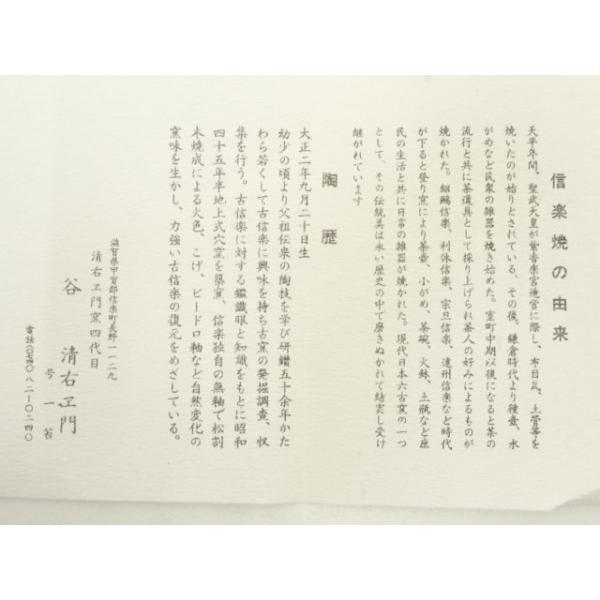 信楽焼の由来
天平年間、聖武天皇が紫香楽宮造営に際し、布目瓦、土管等を
焼いたのが始りとされている、その後、鎌倉時代より種壷、水
がめなど民衆の雑器を焼き始めた。室町中期以後になると茶の
流行と共に茶道具として採り上げられ茶人の好みによるものが
焼かれた。紹鴎信楽、利休信楽、宗旦信楽、遠州信楽など時代
が下ると登り窯により茶壷、小がめ、茶碗、火鉢、土瓶など庶
民の生活と共に日常の雑器が焼かれた。現代日本六古窯の一つ
として、その伝統美は永い歴史の中で磨きぬかれて結実し受け
継がれています
陶歴
大正二年九月二十日生
幼少の頃より父祖伝来の陶技を学び研鑽五十余年かた
わら若くして古信楽に興味を持ち古窯の発掘調査、収
集を行う。古信楽に対する鑑識眼と知識をもとに昭和
四十五年半地上式穴窯を築窯、信楽独自の無釉で松割
木焼成による火色、こげ、ビードロ釉など自然変化の
窯味を生かし、力強い古信楽の復元をめざしている。
滋賀県甲賀郡信楽町長野一一二九
清右ヱ門窯四代目
谷 清右ヱ門
号一谷
電話(〇七四〇)八二-〇二四〇